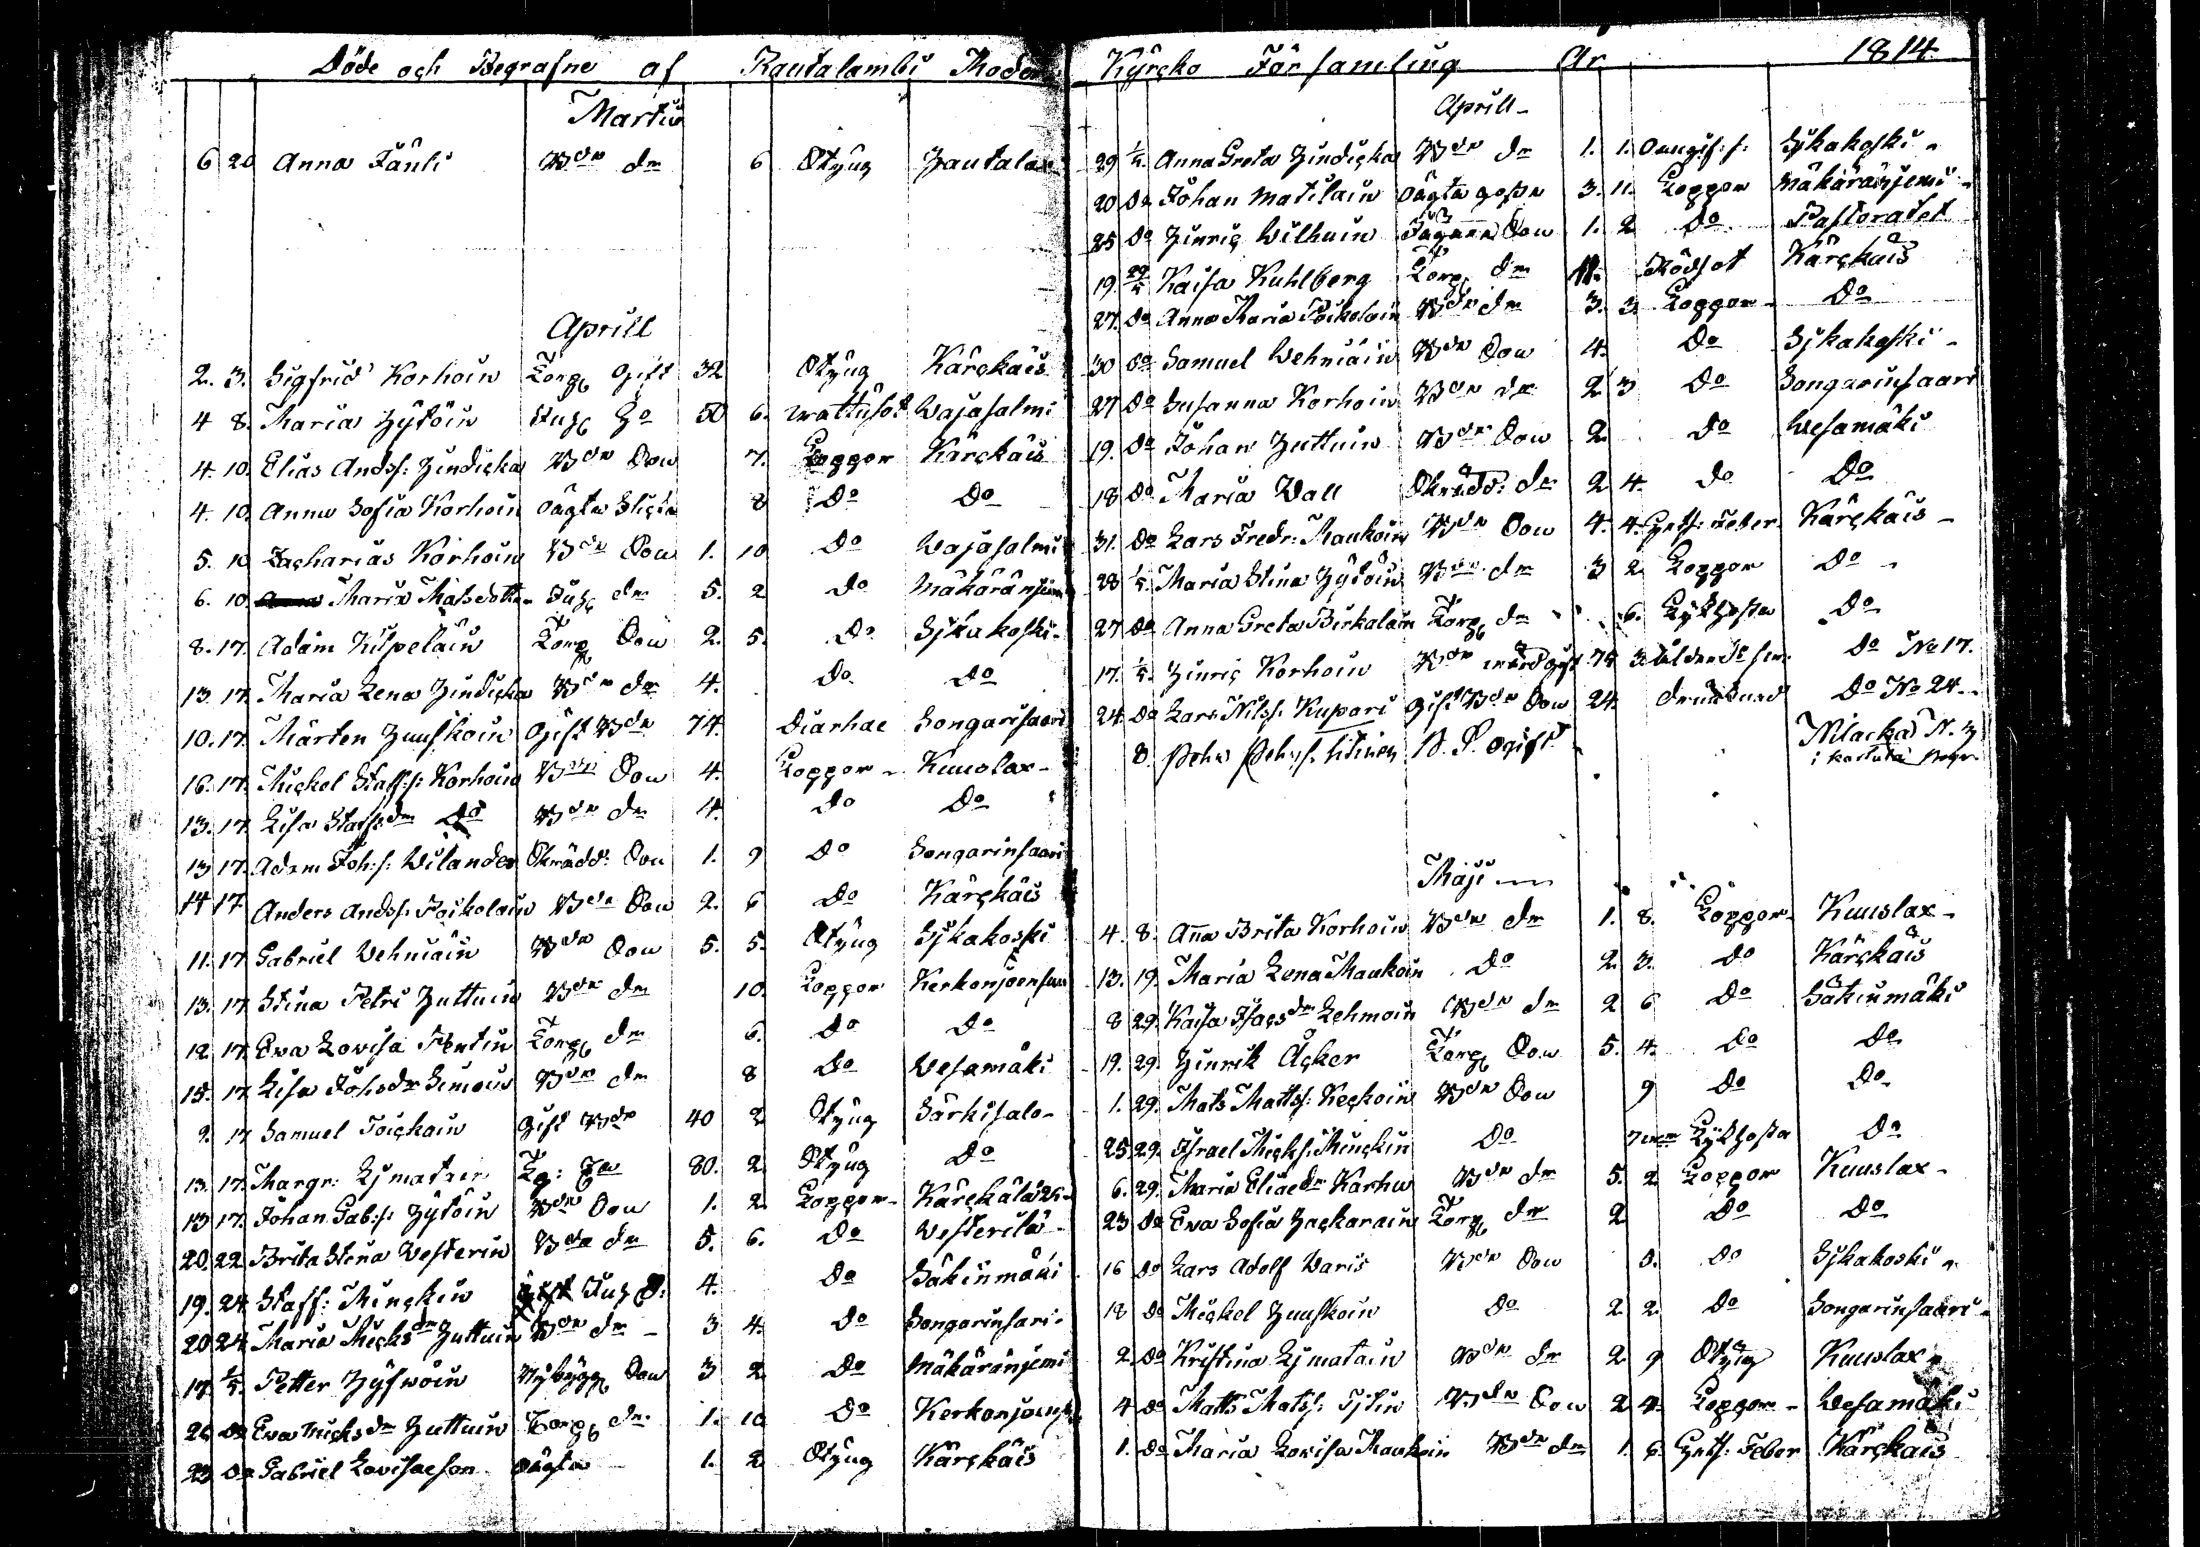 Döde och Begrafne af Rautalambi Moder Kyrcko Församling År 1814
Martii
6 20 Anna Jänti Bdn dr 6 Styng Hautalax
Aprill
2. 3. Sigfrid Korhoin Torp Gift 32 Styng Kärckäis
4 8. Maria Hytöin Inh 50 6. Wattusot Wajasalmi
4. 10. Elias Andss: Hindicka Bdn Son 7. Koppor Kärckäis
4. 10. Anna Sofia Korhoin oägta 8 Do Do
5. 10 Zacharias Korhoin Bdn Son 1. 10 Do Wajasalmi
6. 10. Maria Matsdotter Inh dr 5. 2 Do Mäkäränjemi
8. 17. Adam Kilpeläin Torp Son 2. 5. Do Sjkakoski
13 17. Maria Lena Hindicka Bdn dr 4. Do Do
10. 17. Mårten Huuskoin Gift Bdn 74. Diarhae Songarisaari
16. 17. Mickel Staffs: Korhoin Bdn Son 4. Koppor Kuuslax
13. 17. Lisa Staffsdr Do Bdn dr 4. Do Do
13 17. Adam Joh:s: Wilander Skrädd: Son 1. 9 Do Songarinsaari
14 17 Anders Andss: Poikolain Bdn Son 2. 6 Do Kärckäis
11. 17 Gabriel Vehniäin Bdn Son 5. 5. Styng Sjkakoski
13. 17. Stina Petri Huttuin Bdn dr 10. Koppor Kerkonjoensuu
12 17. Eva Lovisa Pentin Torp dr 6. Do Do
15. 17. Lisa Johsdr Simoin Bdn dr 8 Do Vesamäki
9. 17 Samuel Toickain Gift Bdn 40 2 Styng Särkisalo
13. 17. Margr: Ljmatain 80. 2 Styng Do
13 17. Johan Gab:s: Hytöin Bdn Son 1. 2. Koppor
20. 22 Brita Stina Westerin Bdn dr 5. 6. Do Westerilä
19. 24 Staff: Minckin Inh S: 4. Do Säkinmäki
20 24. Maria Micksdr Huttuin Bdn dr 3 4. Do Songarinsari
17 1/5. Petter Hyfwöin Nybygg Son 3 2. Do Mäkäränjemi
26 Do Eva Micksdr Huttuin Torp dr 1. 10 Do
23 Do Gabriel Lovisaeson oägta 1. 2 Styng Kärckäis
Aprill
29 1/5. Anna Greta Hindicka Bdn dr 1. 1. Sjkakoski
20 Do Johan Matilain oägta gosse 3. 11. Koppor Mäkäränjemi
25 Do Hinric Wilhuin Son 1. 2 Do Pastoratet
19. Kaisa Kuhlberg Torp dr Rödsot Kärckäis
27. Do Anna Maria Poikolain Bdn dr 3. 3. Koppor Do
30 Do Samuel Vehniäin Bdn Son 4. Do Sjkakoski
27 Do Susanna Korhoin Bdn dr 2 3 Do Songarinsaari
19. Do Johan Huttuin Bdn Son 2. Do Wesamäki
18 Do Maria Wall Skrädd: dr 2 4. Do Do
31. Do Lars Fredr: Maukoin Bdn Son 4. 4. Feber Kärckäis
28 1/5. Maria Stina Hytöin Bdn dr 3 2. Koppor Do
27 Do Anna Greta Pirkolain Torp dr 6. Kikhosta Do
17. 1/5. Hinric Korhoin Bdn 74 3. Do No 17.
24. Do Lars Nilss: Kupari Gift Bdn Son 24. drunknad Do No 24.
8. ogift Nilacka N. 7
Maji
4. 8. Anna Brita Korhoin Bdn dr 1. 8. Koppor Kuuslax
13. 19. Maria Lena Maukoin Do 2. 3. Do Kärckäis
8 29. Kaisa Isacsdr Lehmoin Bdn dr 2 6 Do Säkinmäki
19. 29. Hinrik Åcker Torp Son 5. 4. Do Do
1. 29. Mats Mattss: Keckoin Bdn Son 9 Do Do
25 29. Israel Micks: Minckin Do Kikhosta Do
6. 29. Maria Eliaedr Karhu Bdn dr 5. 2 Koppor Kuuslax
23 Do Eva Sofia Hackarain Torp dr 2 Do Do
16 Do Lars Adolf Waris Bdn Son 3. Do Sjkakoski
18 Do Mickel Huuskoin Do 2 2. Do Songarinsaari
2. Do Kristina Ljmatain Bdn dr 2. 9 Styng Kuuslax
4 Do Matts Matss: Bdn Son 2 4. Koppor Wesamäki
1. Do Maria Lovisa Maukoin Bdn dr 1. 6. Feber Kärckäis